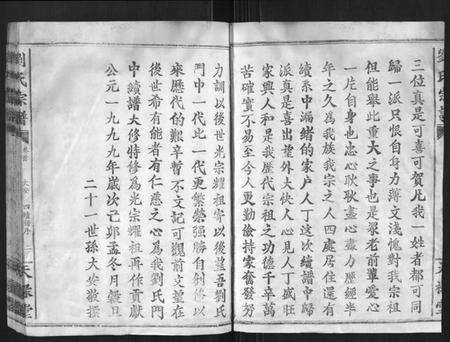 劉氏宗譜
三位真是可喜可賀凡我一姓者都可同
歸一派只恨自身力薄文淺愧對我宗祖
但能舉此重大之事也是眾老前輩愛心
一片自身也忠心耿耿盡心盡力歷經半
年之久為我族我宗之人四處居住還有
續系中漏緒的家户人丁這次續譜中歸
派真是喜出望外大快人心見人丁盛旺
家興人和是我歷代宗祖之功德千辛萬
苦確實不易至今人更勤儉持家奮發努
力調以後世光宗耀祖寄以後望吾劉氏
門中一代比一代更繁榮强勝自創修以
來歷代的艱辛暫不文記可觀前文並在
後世希有能者有仁慈之心為我劉氏門
中續譜大修特修為光宗耀祖再作貢獻
公元一九九九年歲次己卯孟冬月穀旦
二十一世孫大安敬撰
劉氏宗譜
卷首
天祿堂